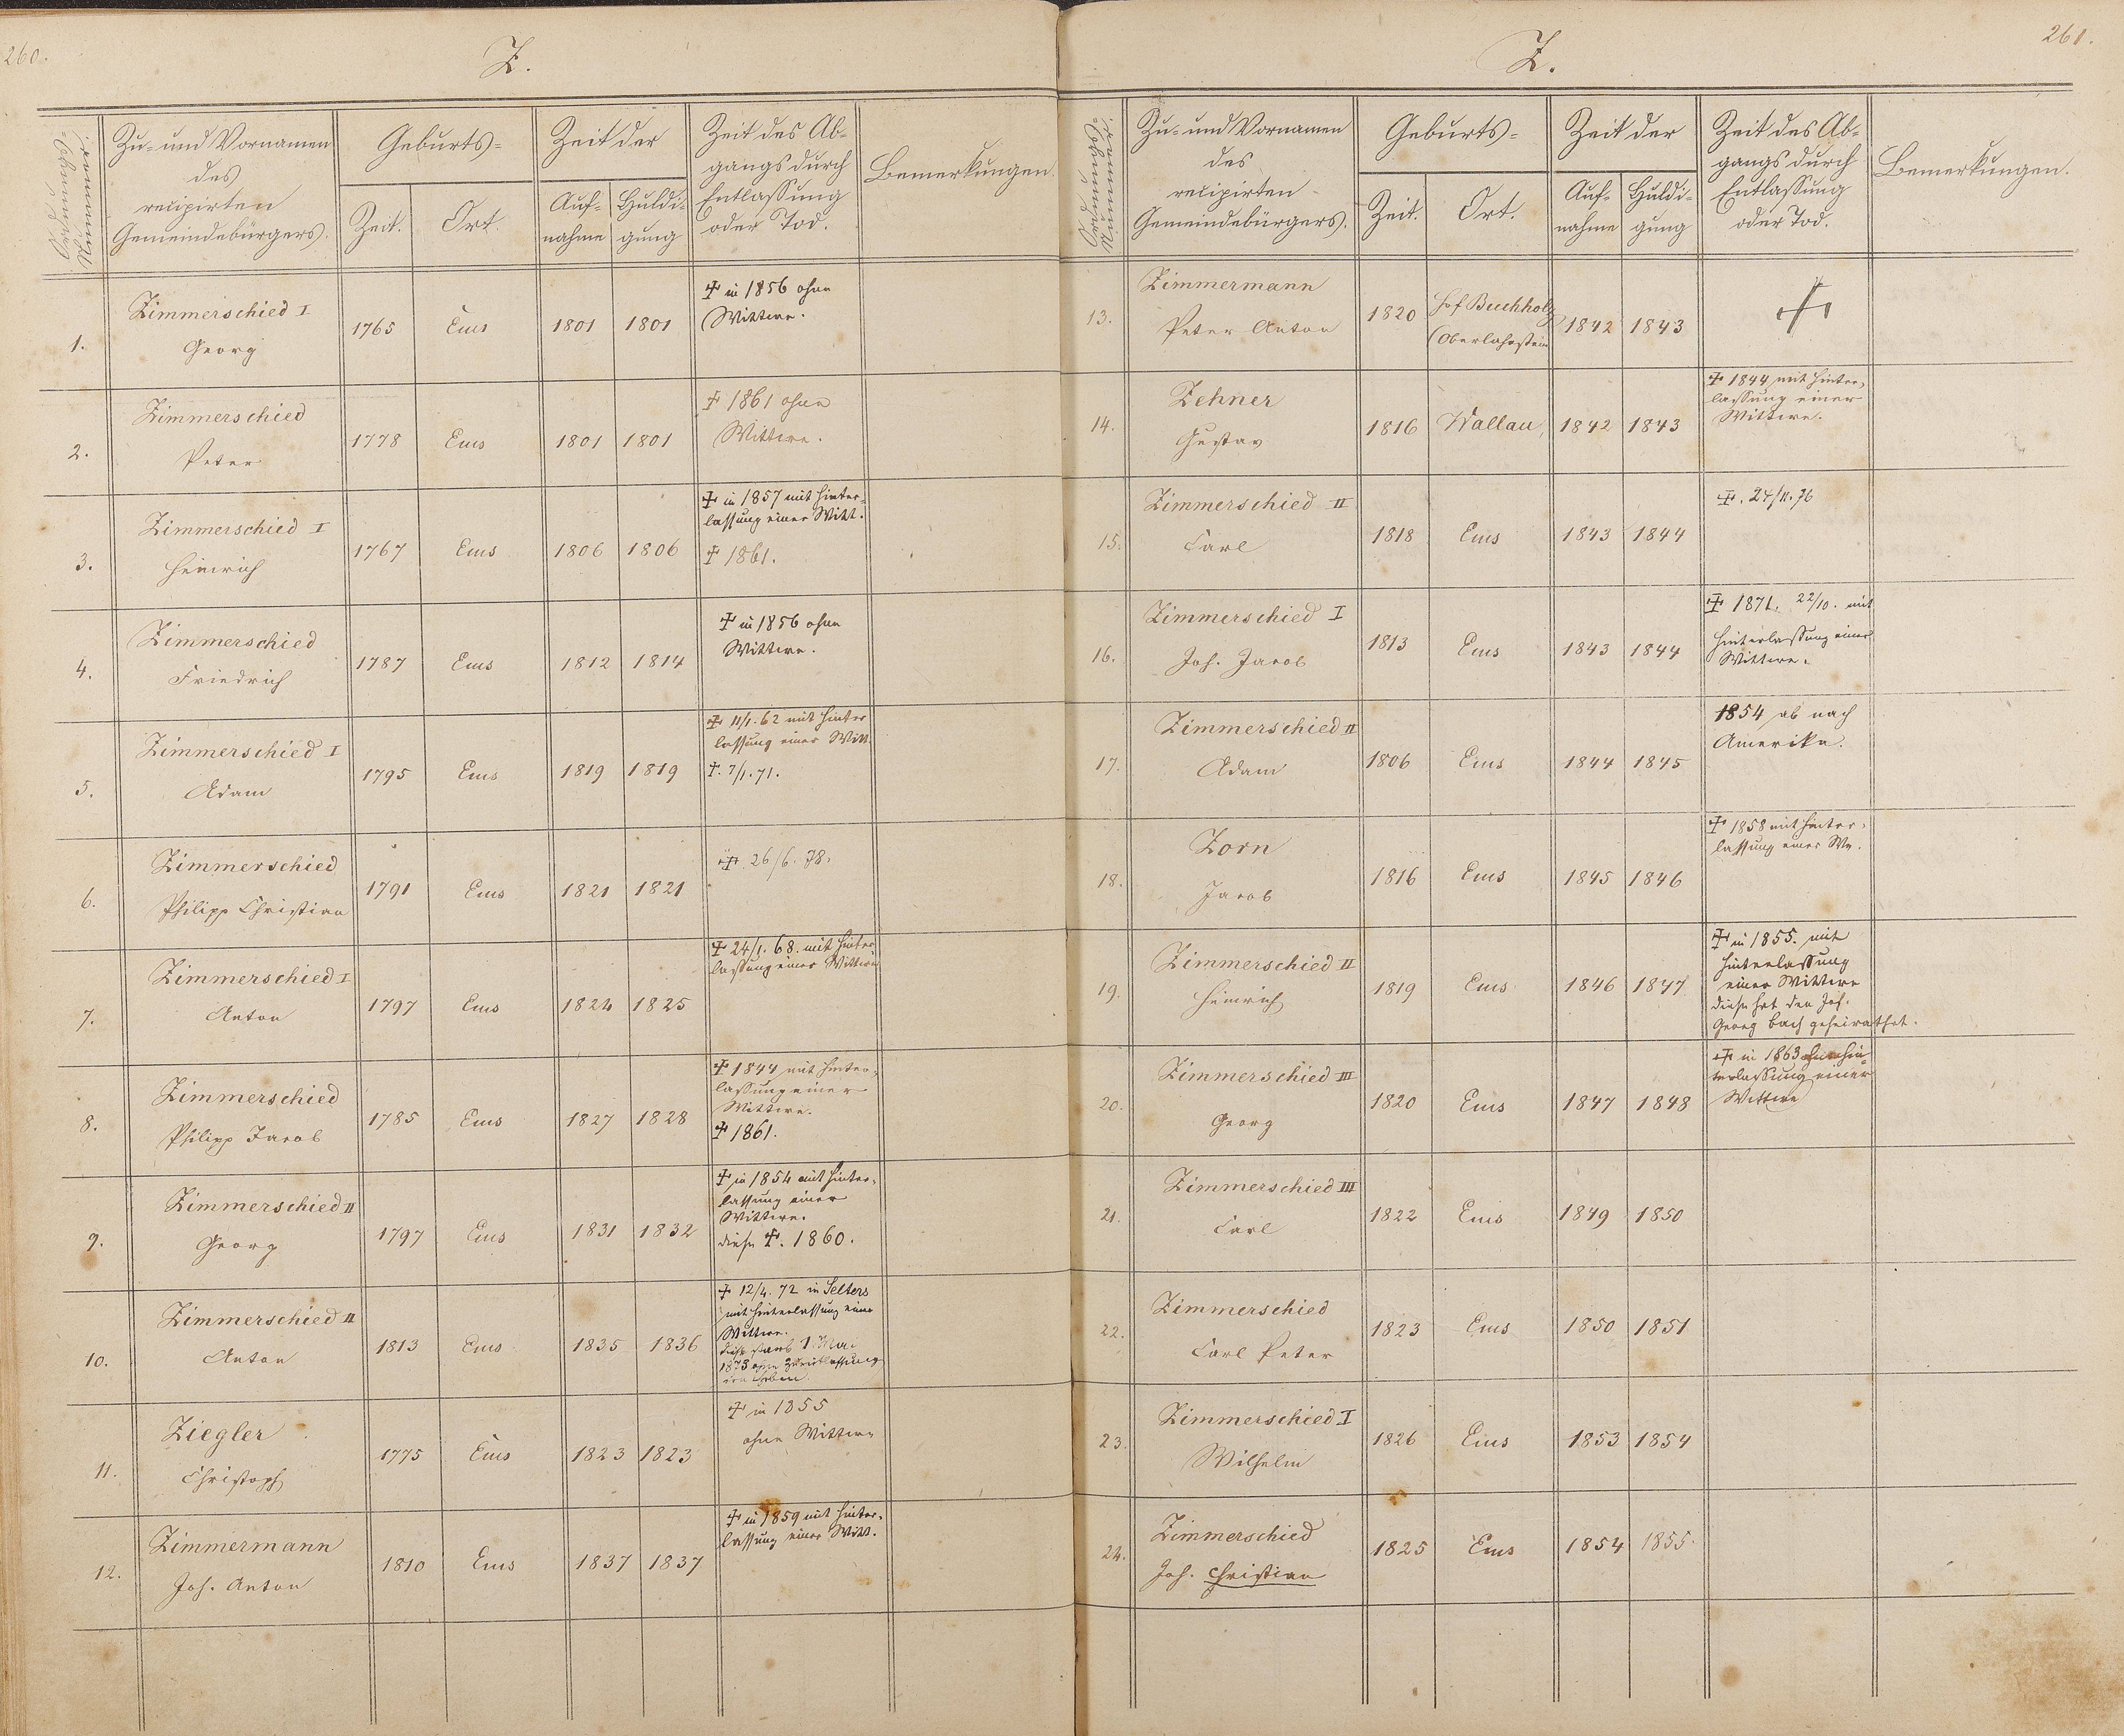 260.
Z.
Ordnungs-
Nummer.
Zu- und Vornamen
des
recipirten
Gemeindebürgers.
Geburts-
Zeit.
Ort.
Zeit der
Auf-
nahme
Huldi-
gung
Zeit des Ab-
gangs durch
Entlassung
oder Tod.
Bemerkungen.
1.
Zimmerschied I
Georg
1765
Ems
1801
1801
† in 1856 ohne
Wittwe.
2.
Zimmerschied
Peter
1778
Ems
1801
1801
† 1861 ohne
Wittwe.
3.
Zimmerschied I
Heinrich
1767
Ems
1806
1806
† in 1857 mit Hinter-
lassung einer Witt.
† 1861.
4.
Zimmerschied
Friedrich
1787
Ems
1812
1814
† in 1856 ohne
Wittwe.
5.
Zimmerschied I
Adam
1795
Ems
1819
1819
† 11/1. 62 mit Hinter
lassung einer Witt.
†. 7/1. 71.
6.
Zimmerschied
Philipp Christian
1791
Ems
1821
1821
† 26/6. 78.
7.
Zimmerschied I
Anton
1797
Ems
1824
1825
† 24/1. 68. mit Hinter
lassung einer Wittwe
8.
Zimmerschied
Philipp Jacob
1785
Ems
1827
1828
† 1844 mit Hinter-
lassung einer
Wittwe.
† 1861.
9.
Zimmerschied II
Georg
1797
Ems
1831
1832
† in 1854 mit Hinter-
lassung einer
Wittwe.
diese †. 1860.
10.
Zimmerschied II
Anton
1813
Ems
1835
1836
† 12/4. 72 in Selters
mit Hinterlassung einer
Wittwe.
diese starb 1 Mai
1873 ohne Zurücklassung
von Erben.
11.
Ziegler
Christoph
1775
Ems
1823
1823
† in 1855
ohne Wittwe
12.
Zimmermann
Joh. Anton
1810
Ems
1837
1837
† in 1859 mit Hinter-
lassung einer Witt.
261.
Z.
Ordnungs-
Nummer.
Zu- und Vornamen
des
recipirten
Gemeindebürgers.
Geburts-
Zeit.
Ort.
Zeit der
Auf-
nahme
Huldi-
gung
Zeit des Ab-
gangs durch
Entlassung
oder Tod.
Bemerkungen.
13.
Zimmermann
Peter Anton
1820
Hof Buchholz
(Oberlahnstein
1842
1843
†
14.
Zehner
Gustav
1816
Wallau,
1842
1843
† 1844 mit Hinter-
lassung einer
Wittwe.
15.
Zimmerschied II
Carl
1818
Ems
1843
1844
†. 24/11. 76
16.
Zimmerschied I
Joh. Jacob
1813
Ems
1843
1844
† 1871. 22/10. mit
Hinterlassung einer
Wittwe.
17.
Zimmerschied II
Adam
1806
Ems
1844
1845
1854 ab nach
Amerika.
18.
Zorn
Jacob
1816
Ems
1845
1846
† 1858 mit Hinter-
lassung einer Ww.
19.
Zimmerschied II
Heinrich
1819
Ems
1846
1847
† in 1855. mit
Hinterlassung
einer Wittwe
diese hat den Joh.
Georg Bach geheirathet.
20.
Zimmerschied III
Georg
1820
Ems
1847
1848
† in 1863 ohne Hin-
terlassung einer
Wittwe
21.
Zimmerschied III
Carl
1822
Ems
1849
1850
22.
Zimmerschied
Carl Peter
1823
Ems
1850
1851
23.
Zimmerschied I
Wilhelm
1826
Ems
1853
1854
24.
Zimmerschied
Joh. Christian
1825
Ems
1854
1855.